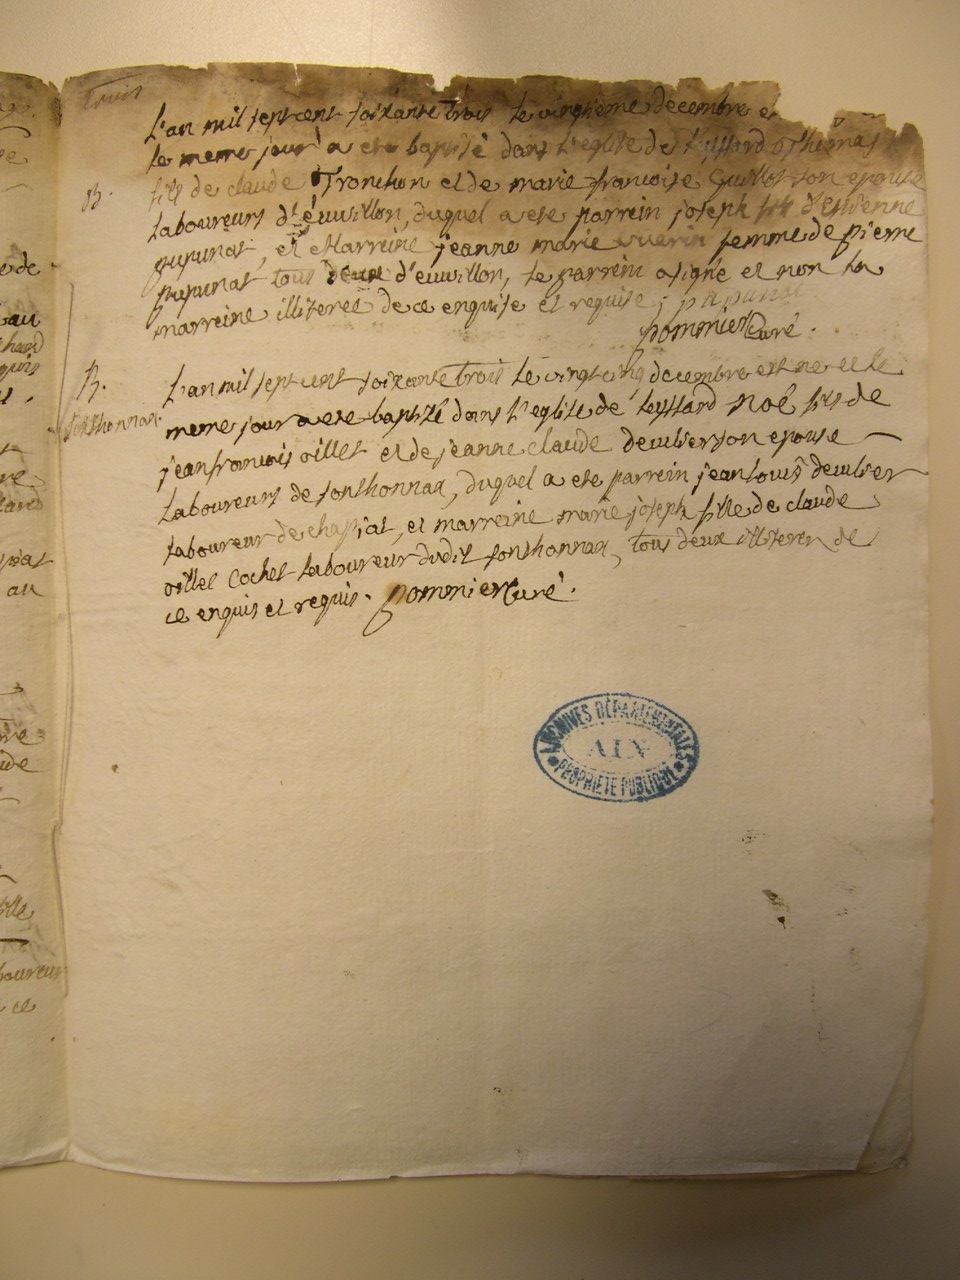 trois
L'an mil sept cent soixante trois le vingtieme decembre et
le meme jour a ete baptisé dans l'eglise de
B.
fils de claude Tronchon et de marie francoise Guillot son epouse
laboureurs d'euvillon, duquel a ete parrein joseph fils d'etienne
pupunat, et Marreine jeanne marie femme de pierre
pupunat tous deux d'euvillon, le parrein a signé et non la
marreine illiteree de ce enquise et requise, pupunat
pommier Curé.
B.
fonthonnax.
L'an mil sept cent soixante trois le vingt cinq decembre est ne et le
meme jour a ete baptisé dans l'eglise de Noé fils de
jean francois oillet et de jeanne claude son epouse
laboureurs de fonthonnax, duquel a ete parrein jean louis
laboureur de chapiat, et marreine marie joseph fille de claude
oillet Cochet laboureur dudit fonthonnax, tous deux illiterer de
ce enquis et requis. pommier Curé.
ARCHIVES DÉPARTEMENTALES
AIN
PROPRIÉTÉ PUBLIQUE